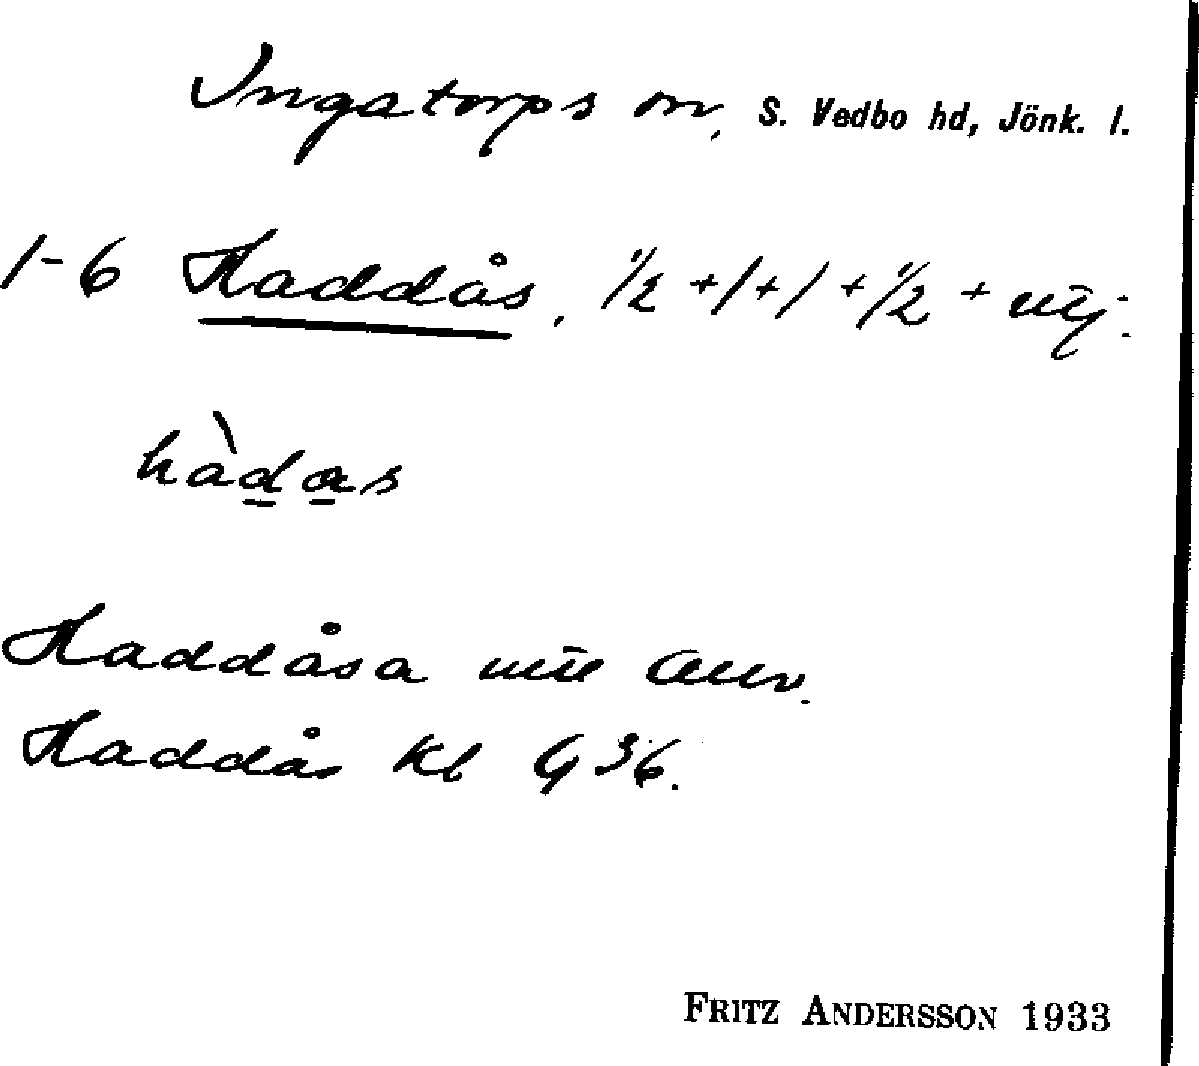 Ingatorps sn, S. Vedbo hd, Jönk. l.
1-6 Haddås, 1/2 +1+1 +1/2 + utj.
hàdas
Haddåsa
Haddås Kl G 36.
FRITZ ANDERSSON 1933